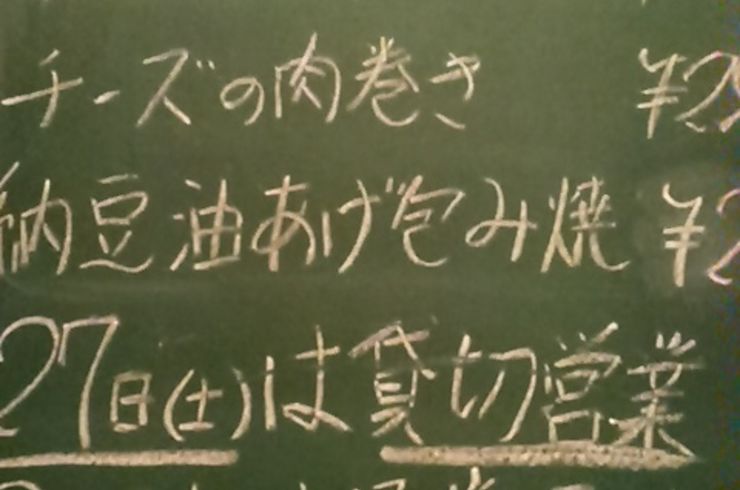 チーズの肉巻き ¥2
納豆油あげ包み焼 ¥2
27日(土)は貸切営業